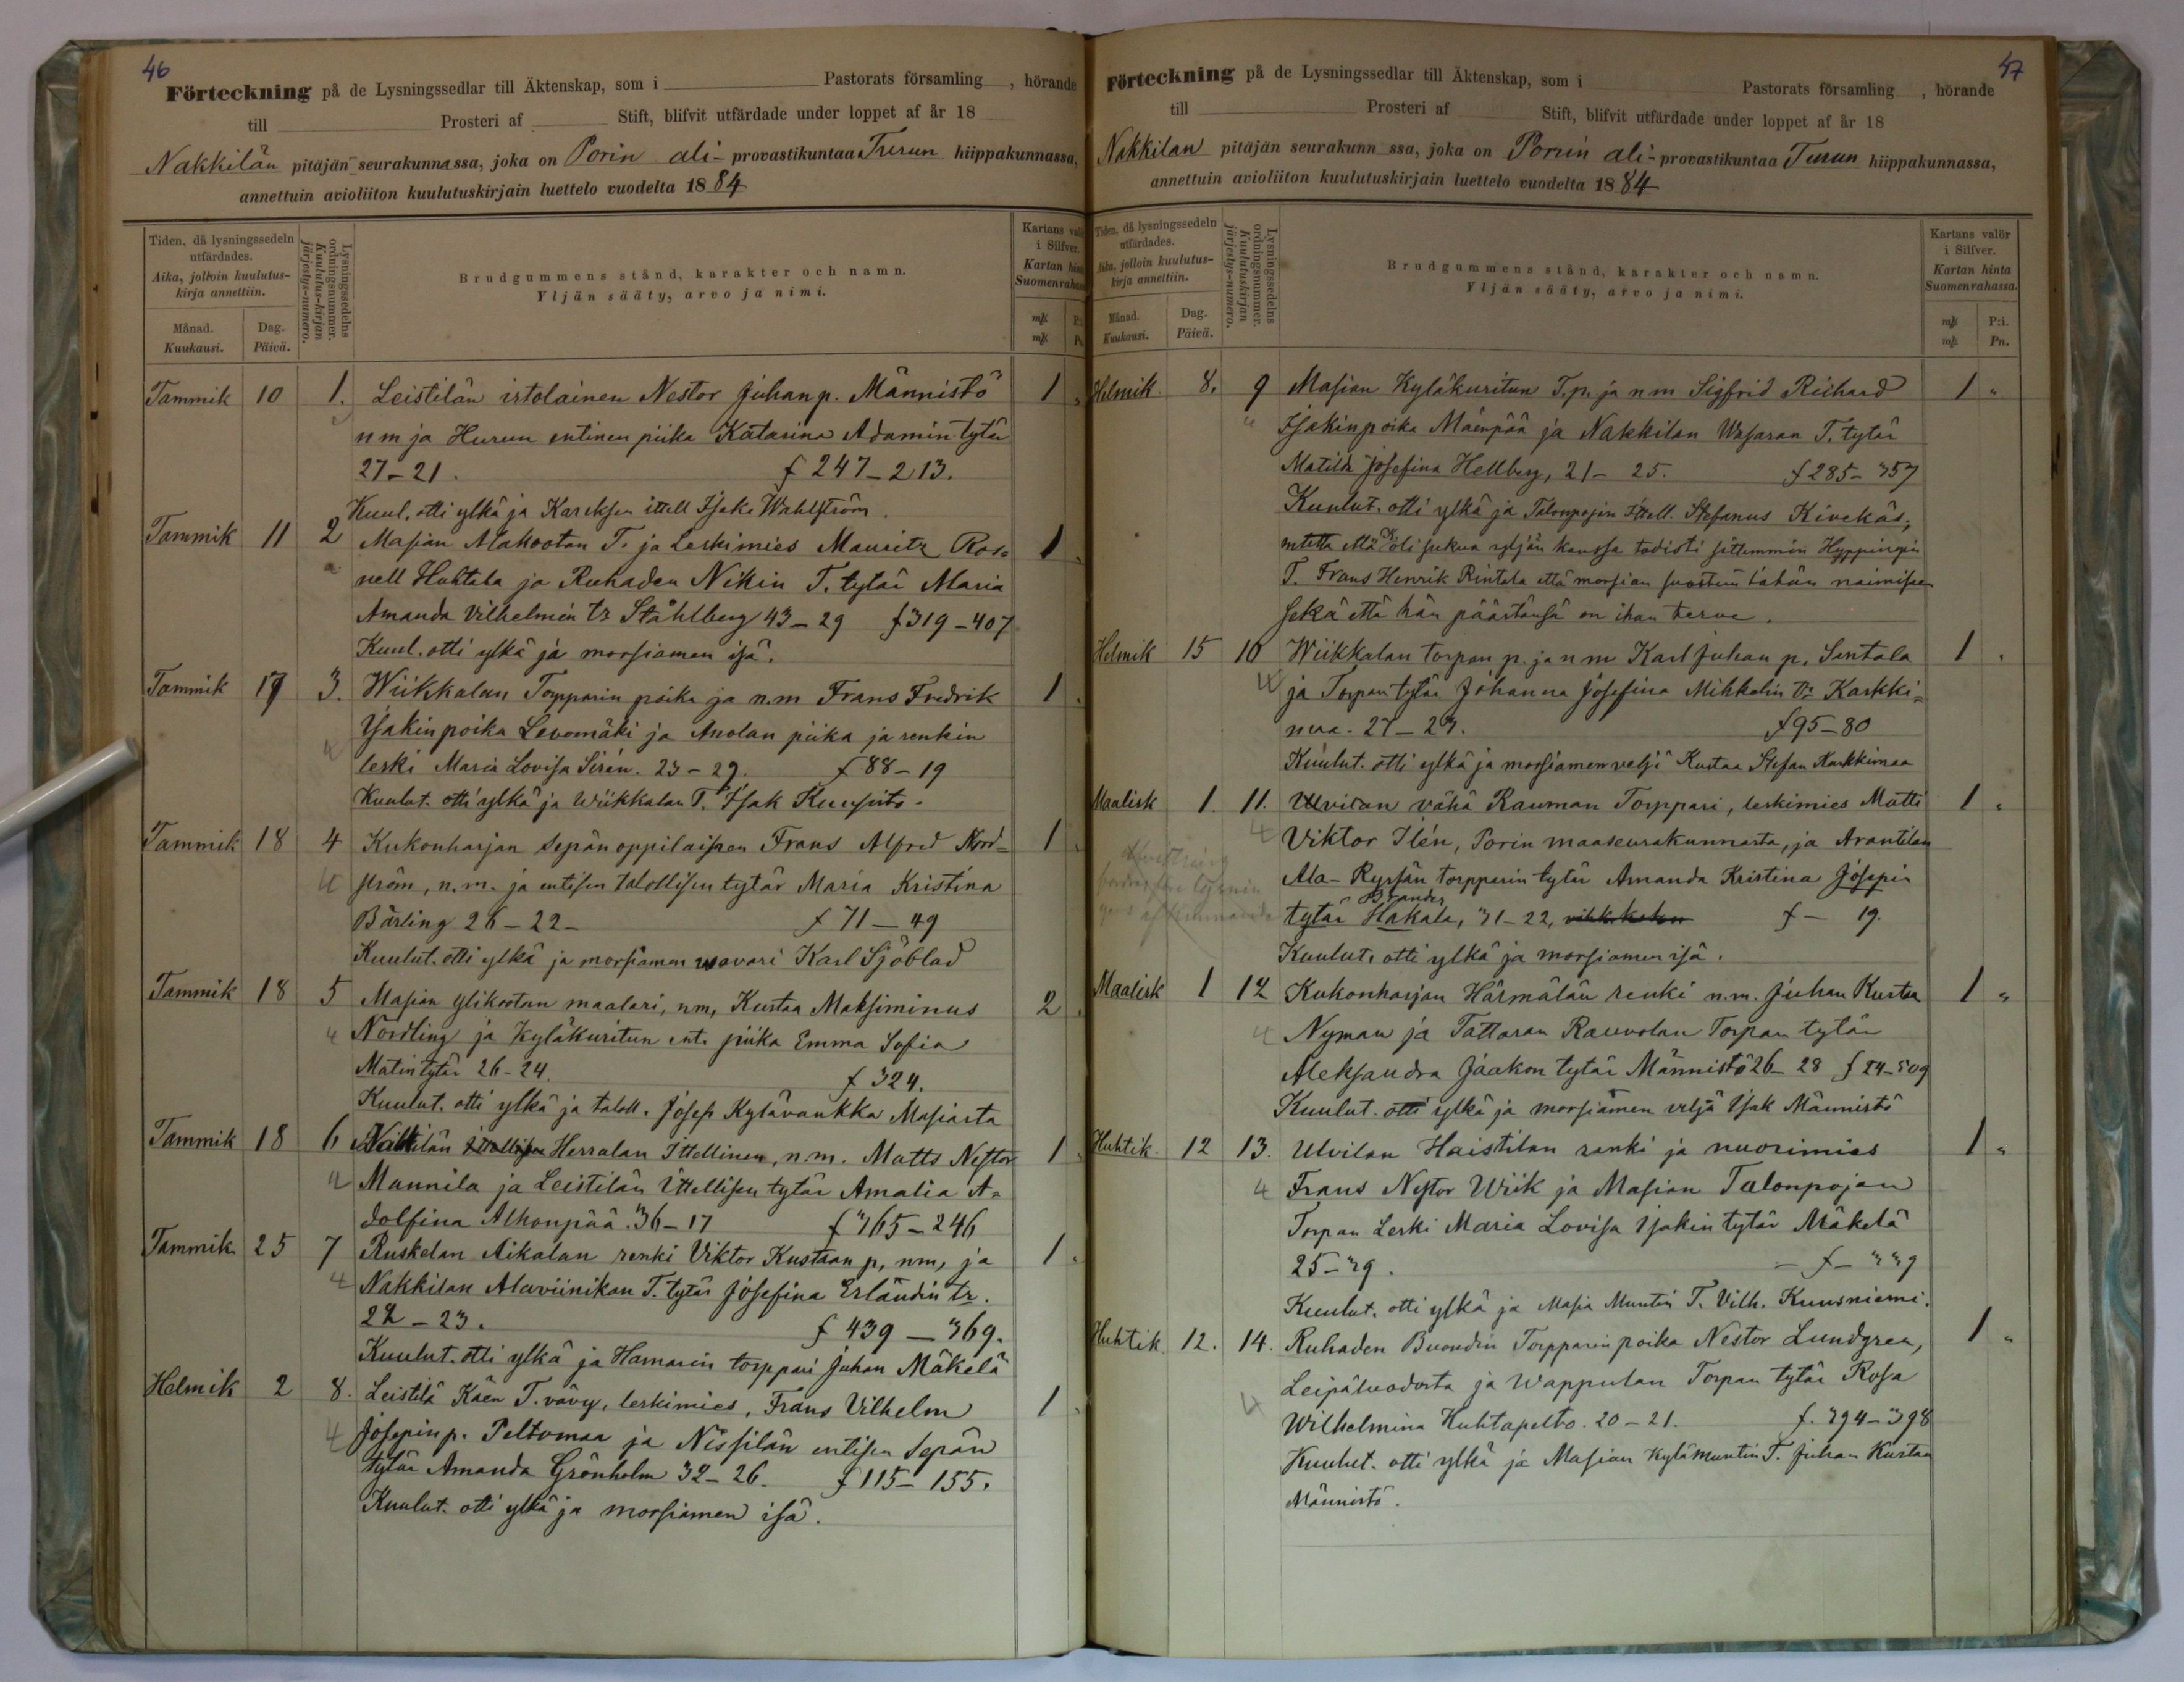 46
Förteckning på de Lysningssedlar till Äktenskap, som i Pastorats församling , hörande
till Prosteri af Stift, blifvit utfärdade under loppet af år 18
Nakkilän pitäjän seurakunnassa, joka on Porin ali- provastikuntaa Turun hiippakunnassa,
annettuin avioliiton kuulutuskirjain luettelo vuodelta 1884
Tiden, då lysningssedeln utfärdades.
Aika, jolloin kuulutus-kirja annettiin.
Månad. Kuukausi.
Dag. Päivä.
Lysningssedelns ordningsnummer.
Kuulutus-kirjan järjestys-numero.
Brudgummens stånd, karakter och namn.
Yljän sääty, arvo ja nimi.
Kartans valör i Silfver.
Kartan hinta Suomenrahassa
Tammik 10 1. Leistilän irtolainen Nestor Juhan p. Männistö 1
n m ja Hurun entinen piika Katarina Adamin tytär
27-21. f 247-213.
Kuul. otti ylkä ja Kareksen ittell Isak Wahlström.
Tammik 11 2 Masian Alakootan T. ja Leskimies Mauritz Ros= 1
nell Huhtala ja Ruhaden Nikin T. tytär Maria
Amanda Vilhelmin tr Ståhlberg 43-29 f 319-407
Kuul. otti ylkä ja morsiamen isä.
Tammik 17 3. Wiikkalan Torpparin poika ja n.m Frans Fredrik 1
Isakinpoika Levomäki ja Anolan piika ja renkin
leski Maria Lovisa Sirén. 23-29. f 88-19
Kuulut. otti ylkä ja Wiikkalan T. Isak Kuusisto.
Tammik 18 4 Kukonharjan Sepänoppilaisen Frans Alfred Nord= 1
ström, n.m. ja entisen talollisen tytär Maria Kristina
Bärling 26-22- f 71-49
Kuulut. otti ylkä ja morsiamen vaari Karl Sjöblad
Tammik 18 5 Masian ylikootan maalari, nm, Kustaa Maksiminus 2
Nordling ja Kyläkuritun ent. piika Emma Sofia
Matintytär 26-24. f 324.
Kuulut. otti ylkä ja taloll. Josef Kylävaukka Masiasta
Tammik 18 6 Herralan Ittellinen, n.m. Matts Nestor 1
Mannila ja Leistilän Ittellisen tytär Amalia A=
dolfina Alhonpää. 36-17 f 365-246
Tammik 25 7 Ruskelan Aikalan renki Viktor Kustaan p, nm, ja 1
Nakkilan Alaviinikan T. tytär Josefina Erlandin tr.
22-23. f 439-369.
Kuulut. otti ylkä ja Hamarin torppari Juhan Mäkelä
Helmik 2 8. Leistilä Käen T. vävy, leskimies, Frans Vilhelm 1
Josepin p. Peltomaa ja Nissilän entisen Sepän
tytär Amanda Grönholm 32-26. f 115-155.
Kuulut. otti ylkä ja morsiamen isä.
47
Förteckning på de Lysningssedlar till Äktenskap, som i Pastorats församling , hörande
till Prosteri af Stift, blifvit utfärdade under loppet af år 18
Nakkilan pitäjän seurakunn ssa, joka on Porin ali- provastikuntaa Turun hiippakunnassa,
annettuin avioliiton kuulutuskirjain luettelo vuodelta 1884
Tiden, då lysningssedeln utfärdades.
Aika, jolloin kuulutus-kirja annettiin.
Månad. Kuukausi.
Dag. Päivä.
Lysningssedelns ordningsnummer.
Kuulutuskirjan järjestys-numero.
Brudgummens stånd, karakter och namn.
Yljän sääty, arvo ja nimi.
Kartans valör i Silfver.
Kartan hinta Suomenrahassa.
P:i. Pn.
Helmik. 8. 9 Masian Kyläkuritun T.p. ja n m Sigfrid Richard 1 "
Isakinpoika Mäenpää ja Nakkilan Wasaran T. tytär
Matilda Josefina Hellberg, 21-25. f 285-357
Kuulut. otti ylkä ja Talonpojan Ittell. Stefanus Kivekäs,
mutta että K. oli sukua yljän kanssa todisti sittemmin Hyppingin
T. Frans Henrik Rintala että morsian suostuu tähän naimiseen
sekä että hän päästänsä on ihan terve.
Helmik 15 10 Wiikkalan torpan p. ja n m Karl Juhan p. Santala 1 "
ja Torpan tytär Johanna Josefina Mihkelin tr Karkki=
maa. 27-23. f 95-80
Kuulut. otti ylkä ja morsiamen velji Kustaa Stefan Karkkimaa
Maalisk 1. 11. Ulvilan vähä Rauman Torppari, leskimies Matti 1 "
Viktor Ilén, Porin maaseurakunnasta, ja Arantilan
Ala-Ryssän torpparin tytär Amanda Kristina Josepin
Brander
tytär Hakala, 31-22, f - 19.
Kuulut. otti ylkä ja morsiamen isä.
Maalisk 1 12 Kukonharjan Härmälän renki n.m. Juhan Kustaa 1 "
Nyman ja Tattaran Rauvolan Torpan tytär
Aleksandra Jaakon tytär Männistö 26-28 f 24-509
Kuulut. otti ylkä ja morsiamen veljä Isak Männistö
Huhtik. 12 13. Ulvilan Haistilan renki ja nuorimies 1 "
Frans Nestor Wiik ja Masian Talonpojan
Torpan Leski Maria Lovisa Isakin tytär Mäkelä
25-39. - f - 339
Kuulut. otti ylkä ja Masia Muntin T. Vilh. Kuusniemi.
Huhtik. 12. 14. Ruhaden Buondin Torpparin poika Nestor Lundgren, 1 "
Leipäluodosta ja Wappulan Torpan tytär Rosa
Wilhelmina Huhtapelto. 20-21. f. 394-398
Kuulut. otti ylkä ja Masian Kylämuntin T. Juhan Kustaa
Männistö.